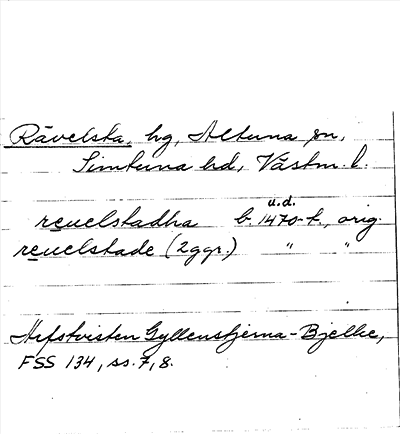 Rävelsta, hg, Altuna sn,
Simtuna hd, Västm. l.
u.d.
reuelstadha b. 1470-t., orig.
reuelstade (2ggr.) " "
Arfstvisten Gyllenstjerna-Bjelke,
FSS 134, ss. 7, 8.